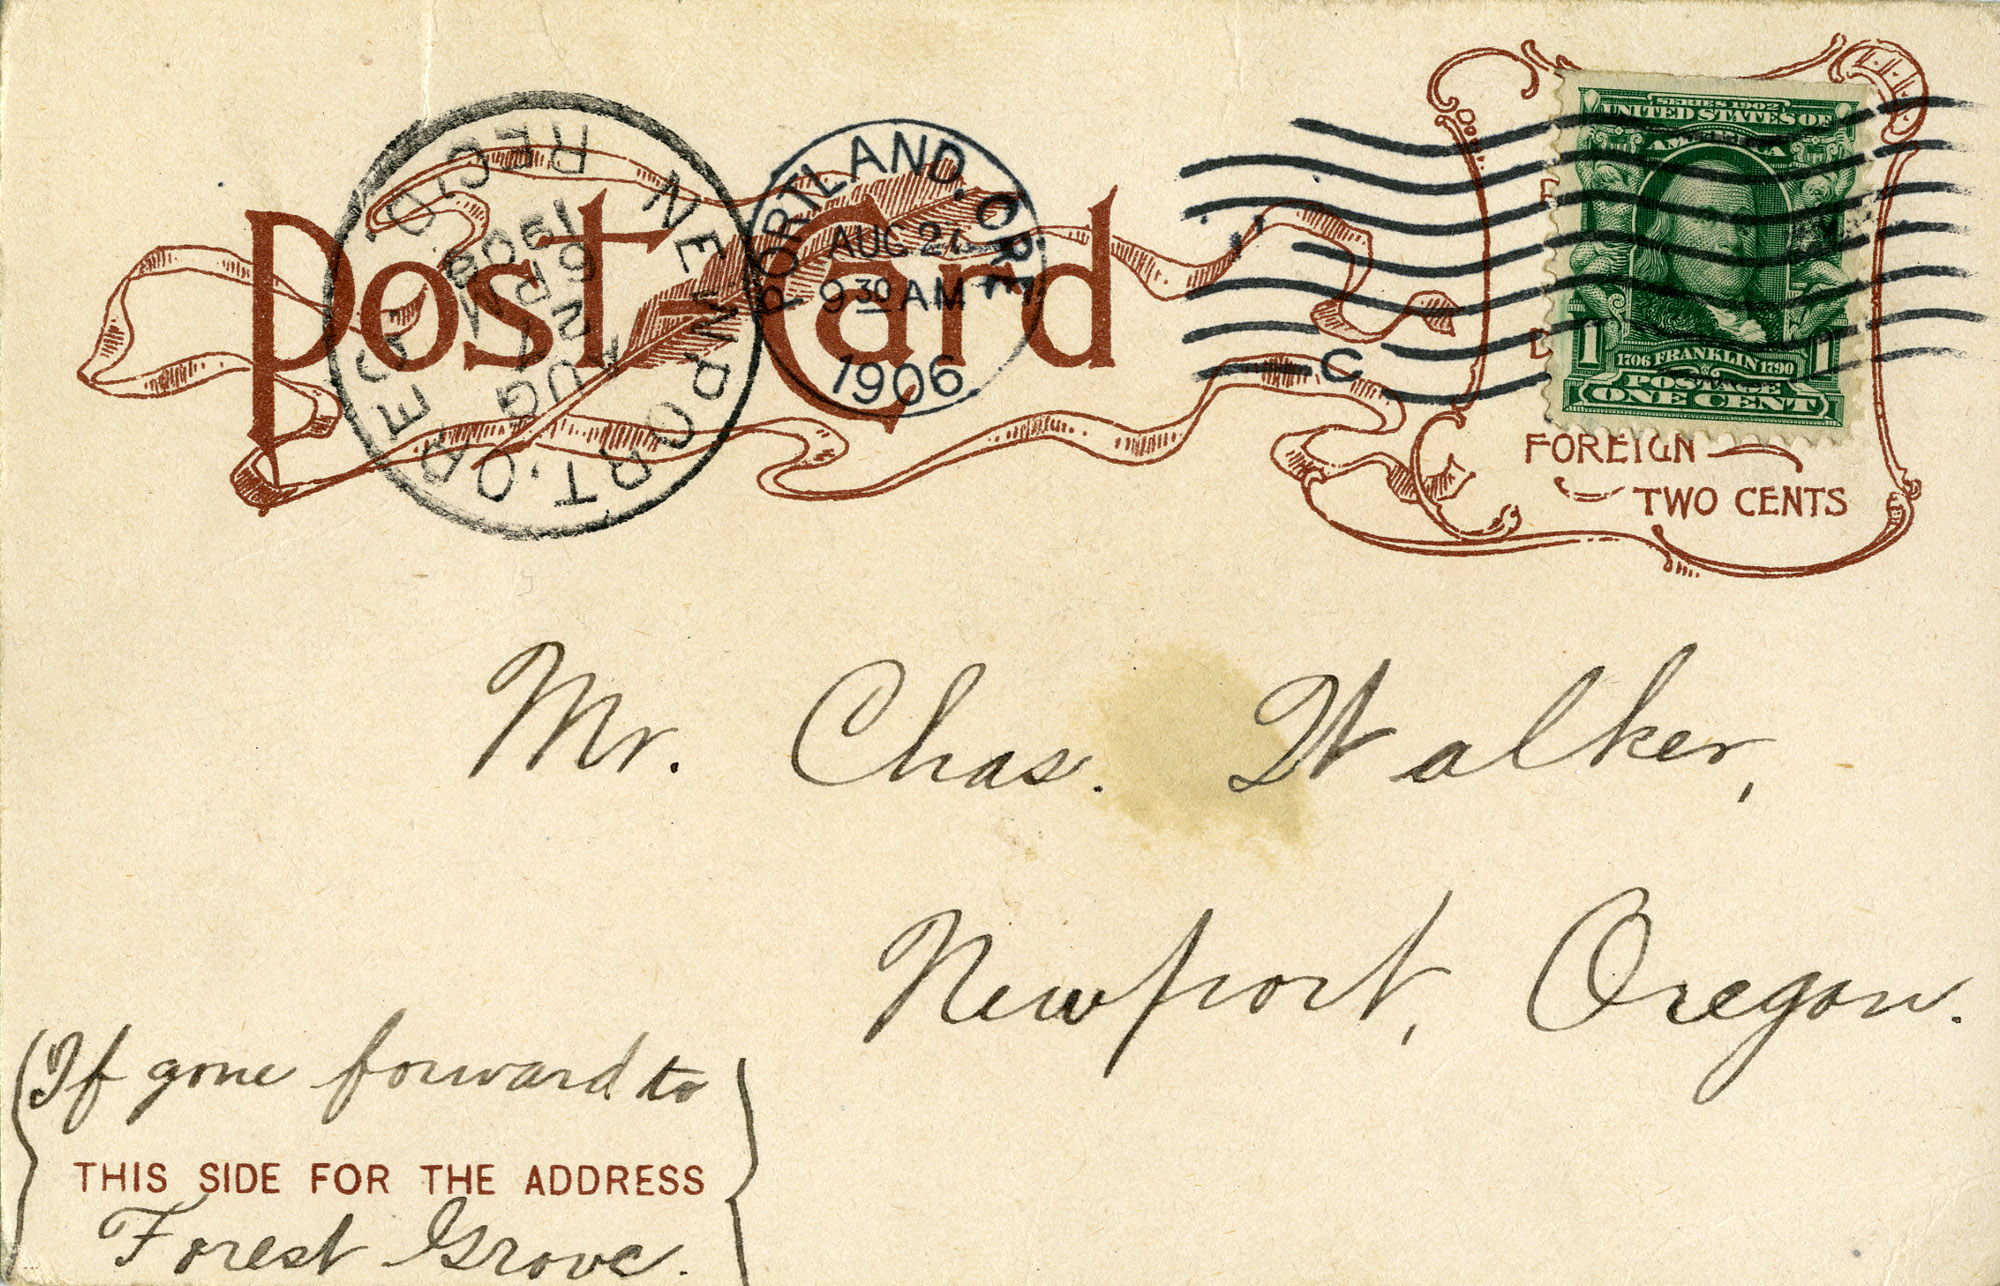 Post Card
NEWPORT, OREG.
REC'D.
AUG
21
6 PM
1906
PORTLAND, ORE.
AUG 21
9 30 AM
1906
C
SERIES 1902
UNITED STATES OF
AMERICA
1 1706 FRANKLIN 1790 1
POSTAGE
ONE CENT
FOREIGN
TWO CENTS
Mr. Chas. Walker,
Newport, Oregon.
If gone forward to
THIS SIDE FOR THE ADDRESS
Forest Grove.